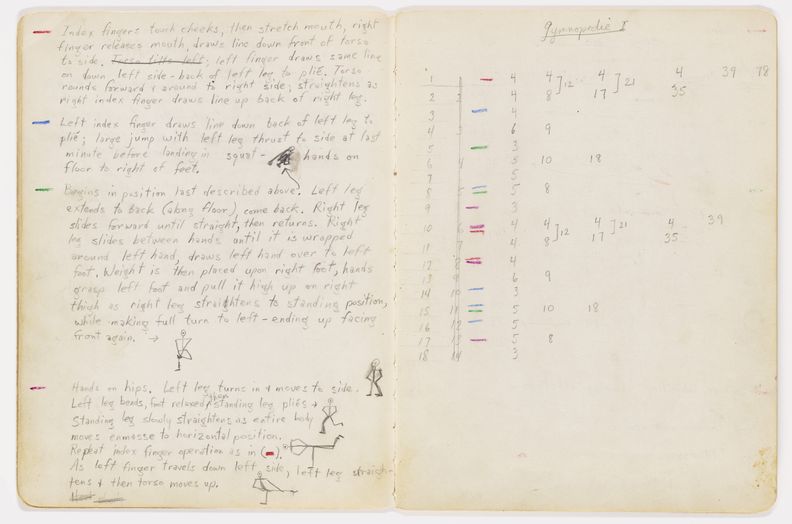 Index fingers touch cheeks, then stretch mouth, right
finger releases mouth, draws line down front of torso
to side. Torso tilts left; left finger draws same line
on down left side-back of left leg to plié. Torso
rounds forward & around to right side; straightens as
right index finger draws line up back of right leg.
Left index finger draws line down back of left leg to
plié; large jump with left leg thrust to side at last
minute before landing in squat - hands on
floor to right of feet.
Begins in position last described above. Left leg
extends to back (along floor), come back. Right leg
slides forward until straight, then returns. Right
leg slides between hands until it is wrapped
around left hand, draws left hand over to left
foot. Weight is then placed upon right foot, hands
grasp left foot and pull it high up on right
thigh as right leg straightens to standing position,
while making full turn to left - ending up facing
front again. →
Hands on hips. Left leg turns in & moves to side.
Left leg bends, foot relaxed, then standing leg pliés →
Standing leg slowly straightens as entire body
moves enmasse to horizontal position.
Repeat index finger operation as in (-).
As left finger travels down left side, left leg straigh-
tens & then torso moves up.
Gymnopedie I
1 4 4 ]12 4 ]21 4 39 78
2 2 4 8 17 35
3 4
4 3 6 9
5 3
6 4 5 10 18
7 5
8 5 5 8
9 3
10 6 4 4 ]12 4 ]21 4 39
11 7 4 8 17 35
12 8 4
13 9 6 9
14 10 3
15 11 5 10 18
16 12 5
17 13 5 8
18 14 3